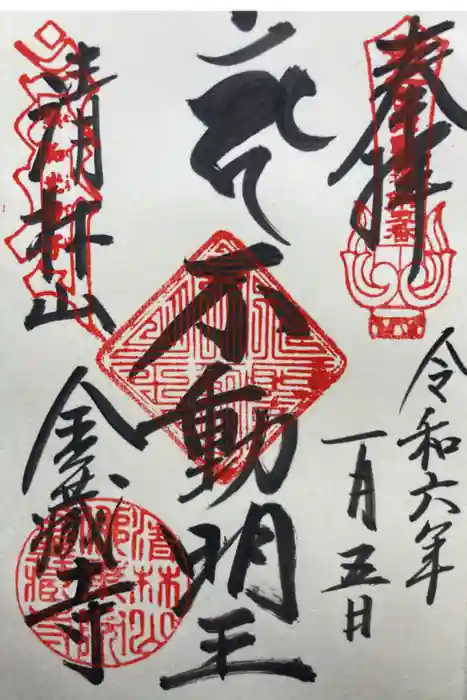 奉拝
令和六年
一月五日
不動明王
清林山
金蔵寺